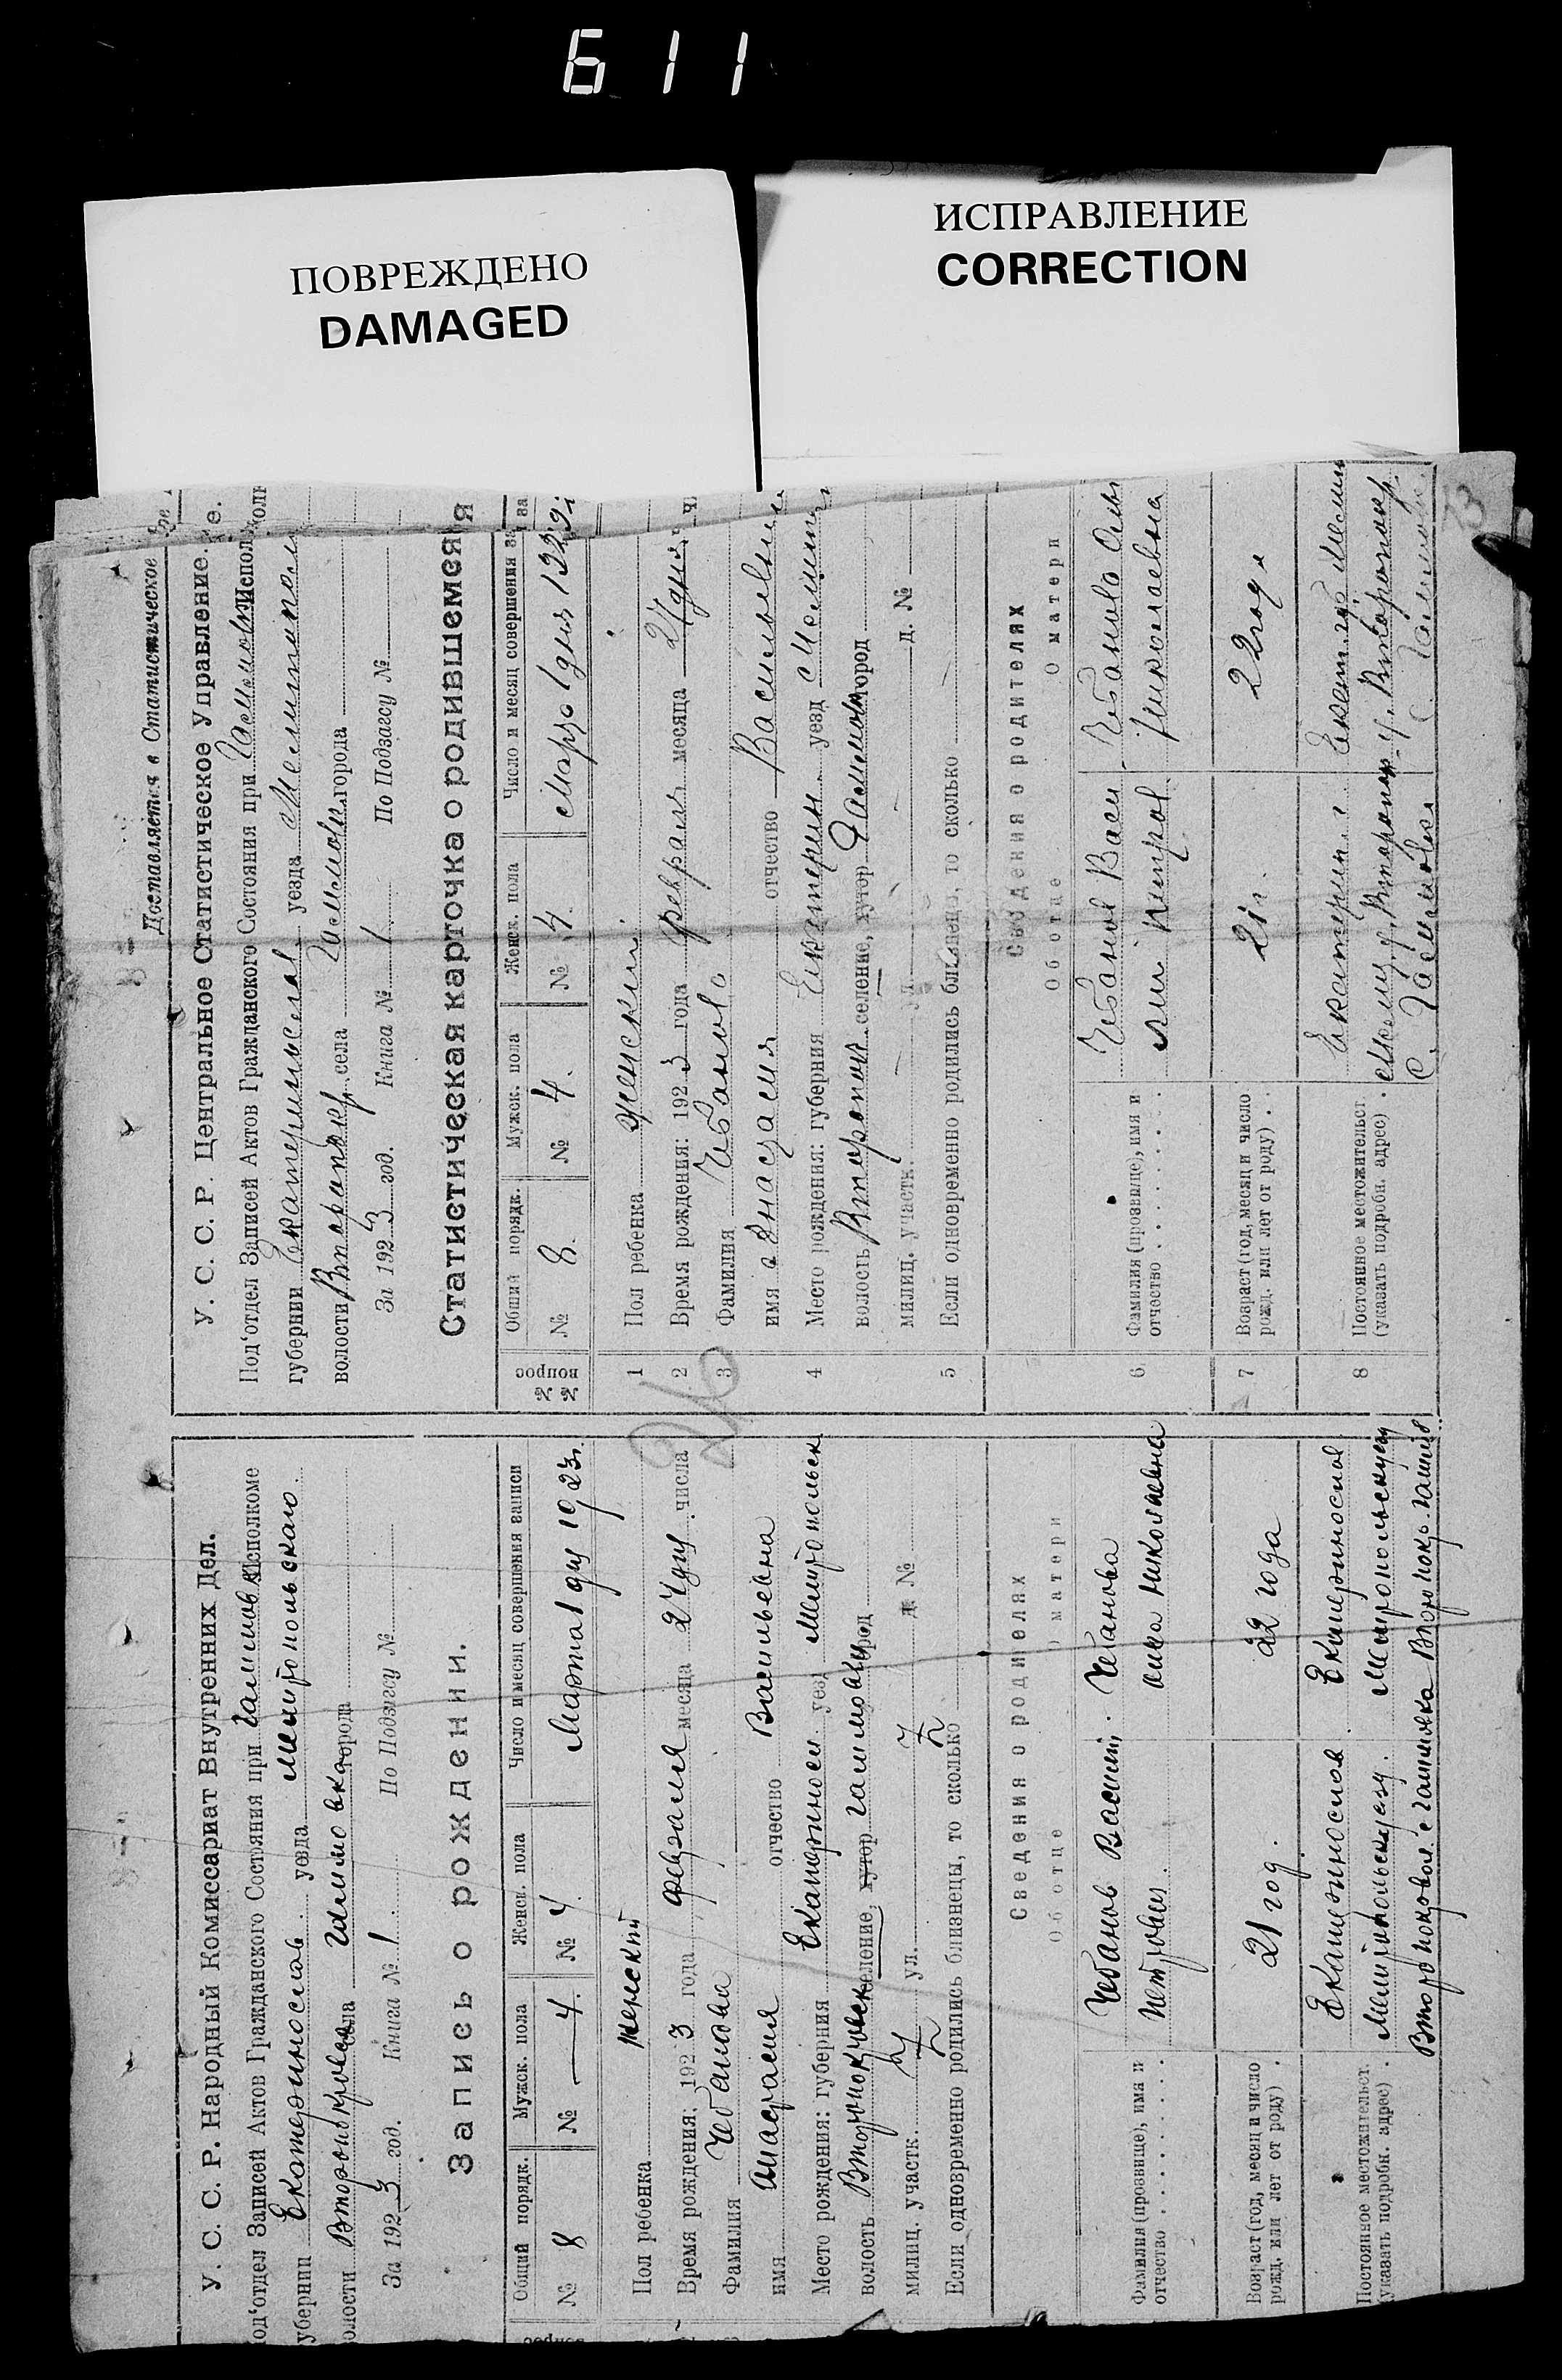 611
ПОВРЕЖДЕНО
DAMAGED
ИСПРАВЛЕНИЕ
CORRECTION
У. С. С. Р. Народный Комиссариат Внутренних Дел.
од'отдел Записей Актов Гражданского Состояния при Исполкоме
убернии Екатеринослав уезда Мелитопольского
олости села города
За 1923 год. Книга № 1 По Подзагсу №
Запись о рождении.
Общий порядк. Мужск. пола Женск. пола Число и месяц совершения записи
№ 8 № — 4. № 4. Марта 1 дня 1923г.
Пол ребенка женский
Время рождения: 1923 года февраля месяца 24 дня числа
Фамилия Чебанова
имя Анастасия отчество Васильевна
Место рождения: губерния Екатеринослав уезд Мелитопольск
волость селение, хутор город
милиц. участк. ул. д. №
Если одновременно родились близнецы, то сколько
Сведения о родителях
Об отце О матери
Фамилия (прозвище), имя и Чебанов Васили Чебанова
отчество Петрович Николаевна
Возраст (год, месяц и число 21 год. 22 года
рожд. или лет от роду)
Постоянное местожительст. Екатеринослав Екатеринослав
(указать подробн. адрес) Мелитопольск уезд. Мелитопольск уезд
Доставляется в Статистическое
У. С. С. Р. Центральное Статистическое Управление.
Под'отдел Записей Актов Гражданского Состояния при Исполк
губернии Екатеринослав уезда Мелитопол
волости села города
За 1923 год. Книга № 1 По Подзагсу №
Статистическая карточка о родившемся
№№ вопрос Общий порядк. Мужск. пола Женск. пола Число и месяц совершения за
№ 8. № 4. № 4. Марта 1 дня 1923
1 Пол ребенка женский.
2 Время рождения: 1923 года февраля месяца 24 дня
3 Фамилия Чебанова
имя Анастасия отчество Васильевна
4 Место рождения: губерния Екатерин. уезд Мелитоп
волость селение, хутор город
милиц. участк. ул. д. №
5 Если одновременно родились близнецы, то сколько
Сведения о родителях
Об отце О матери
6 Фамилия (прозвище), имя и Чебанов Васи Чебанова
отчество лий Петров Николаевна
7 Возраст (год, месяц и число 21 г. 22 года
рожд. или лет от роду)
8 Постоянное местожительст. Екатерин. г
(указать подробн. адрес)
26